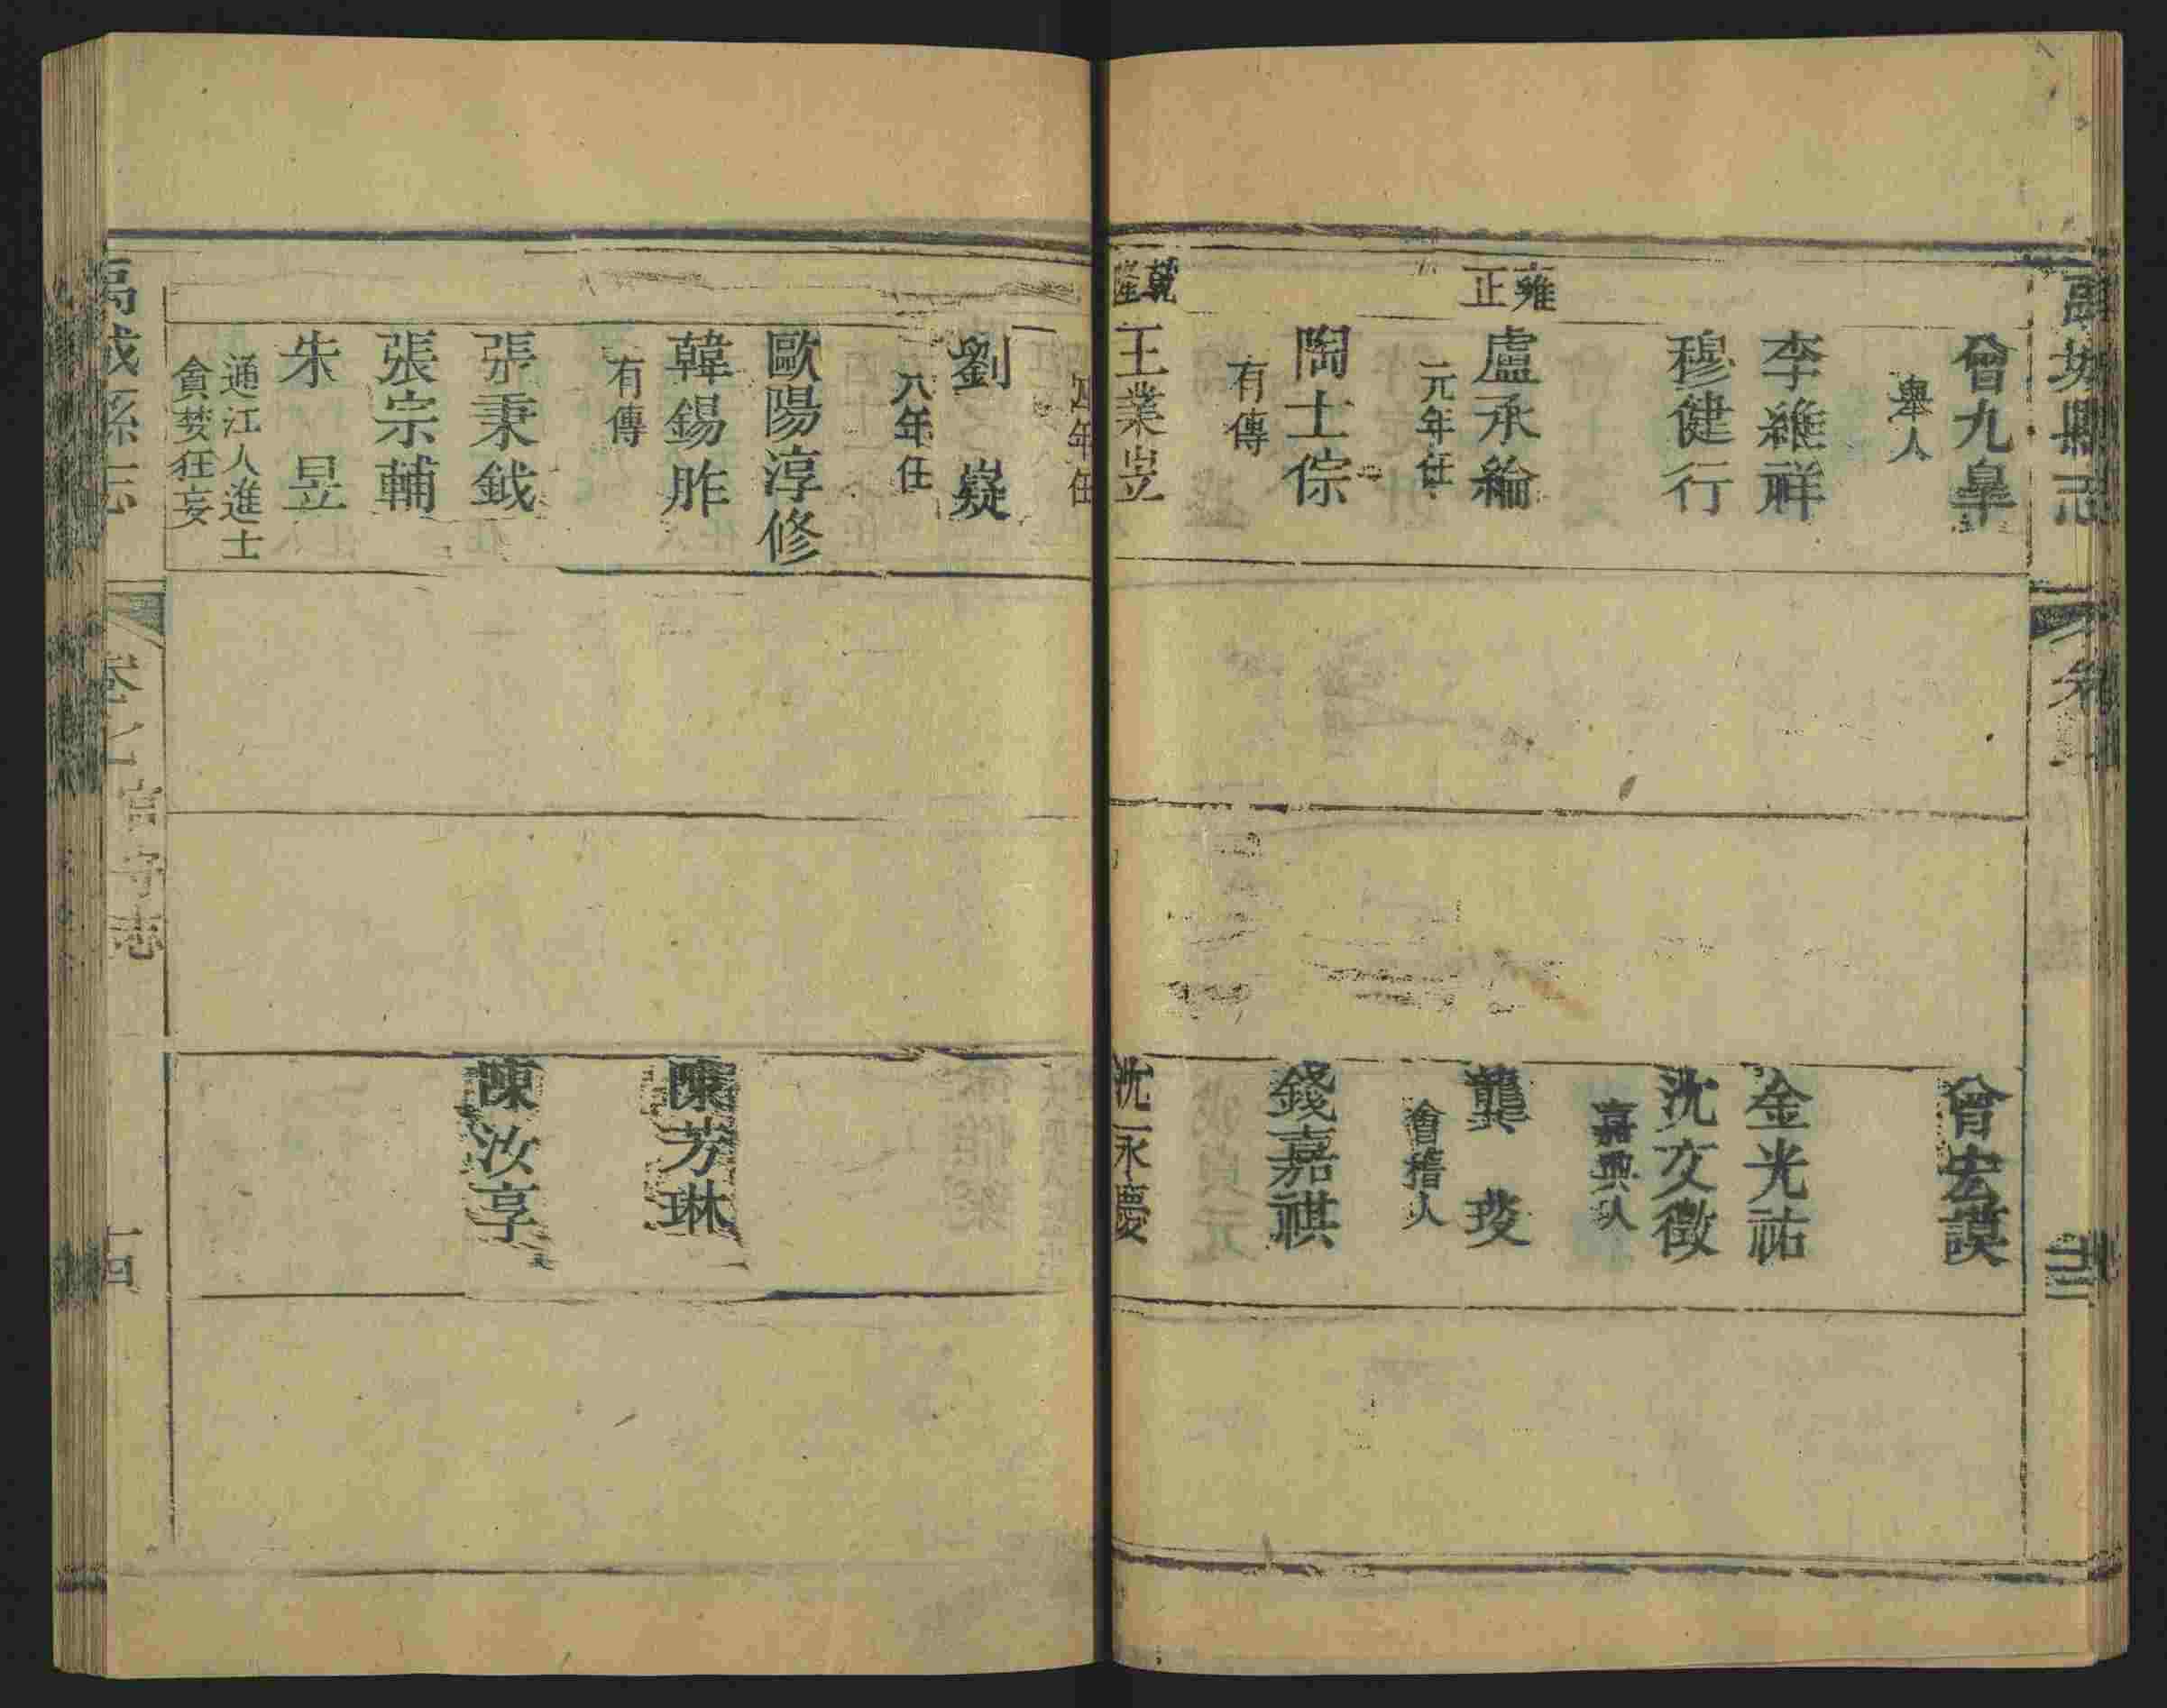 曾九皐
舉人
李維祥
穆健行
雍正
盧承綸
元年任
陶士倧
有傳
乾隆
王業岦
曾宏謨
金光祐
沈文徵
嘉興人
龔 葰
會稽人
錢嘉祺
沈永慶
四年任
劉 嶷
八年任
歐陽淳修
韓錫胙
有傳
張秉鉞
張宗輔
朱 昱
通江人進士
貪婪狂妄
陳芳琳
陳汝亨
官守志
十四